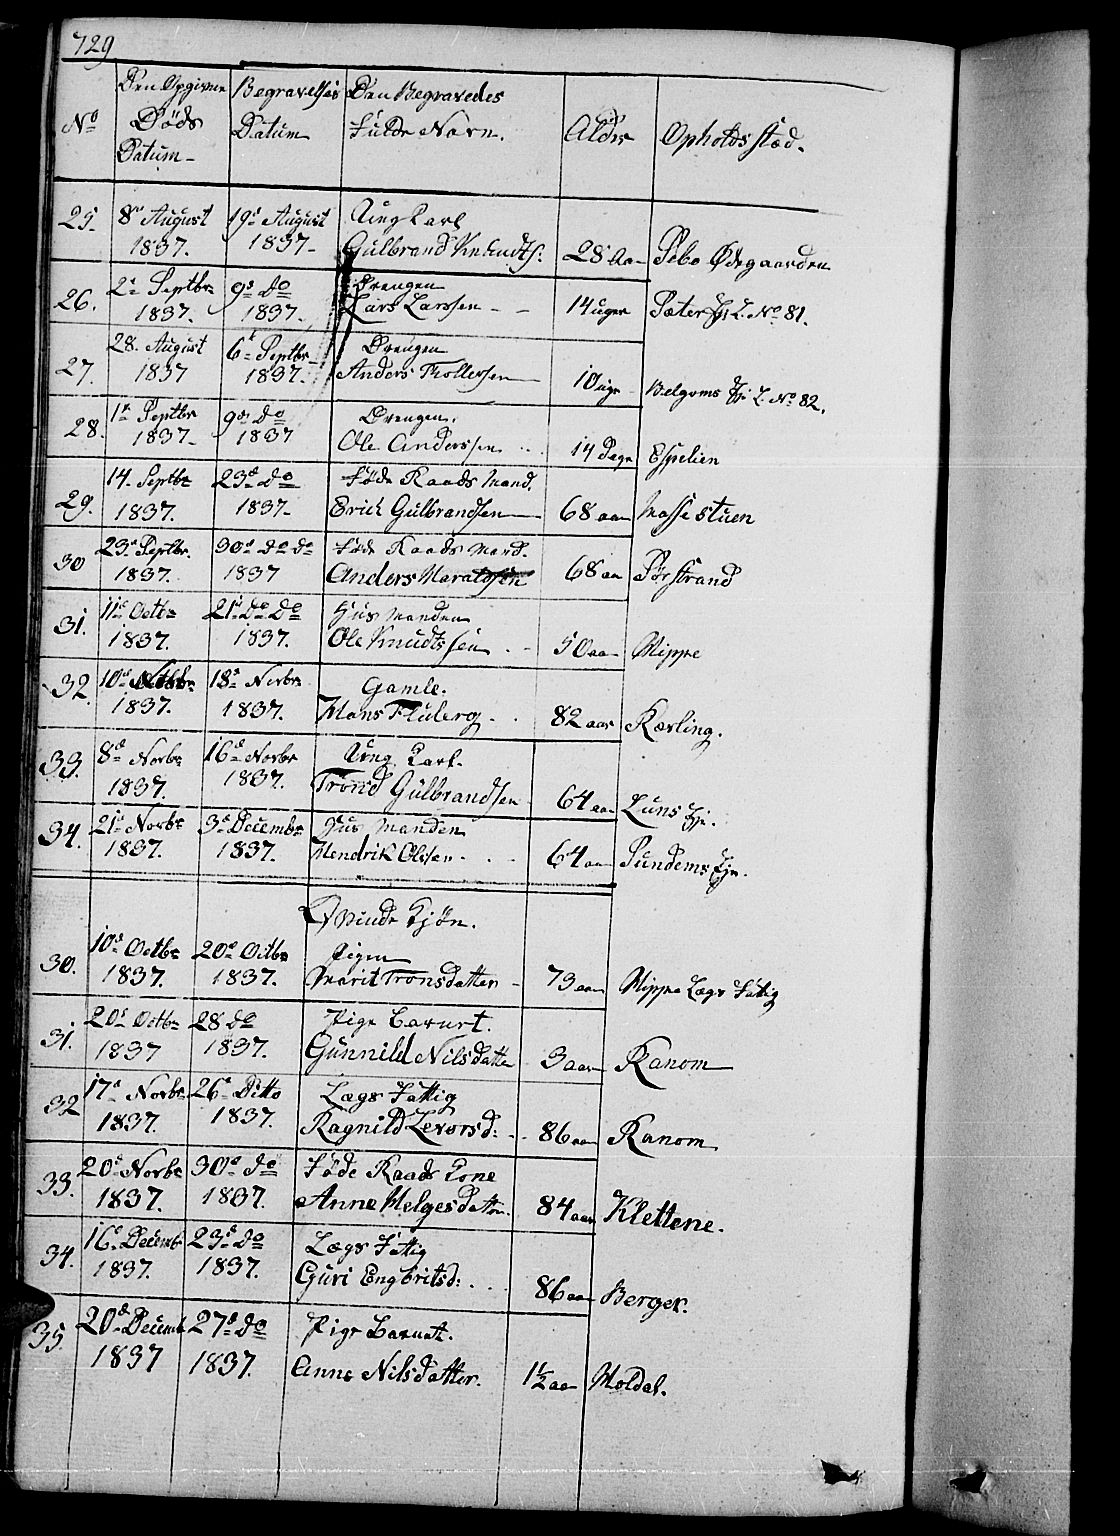 729
No Den Opgivne Døds Datum- Begravelses Datum Den Begravedes Fulde Navn. Alder Opholds stæd.
25. 8de August 1837. 19de August 1837- Ung Karl Gulbrand Knudts: 28 Aar Sebo Ødegaarden
26. 2de Septbr 1837. 9de do 1837. Drengen Lars Larssen - - 14 uger Sæter Eje L. No 81.
27. 28. August 1837 6te Septbr 1837. Drengen Anders Thollefsen 10 uger Belgoms Eje L. No 82.
28. 1te Septbr 1837- 9de do 1837 Drengen. Ole Anderssen 14 Dage Espelien
29. 14. Septbr 1837. 23de do 1837- Føde Raads Mand. Erick Gulbrandsen 68 aar Masse stuen
30 23de Septbr. 1837. 30de do do 1837 Føde Raads Mand. Anders Haraldsen 68 aar Sør strand
31. 11te Octbr 1837. 21de do do 1837. Huus manden Ole Knudtssen - - 50 aar Hippe
32. 10de Novbr 1837. 18de Novbr 1837. Gamle. Hans Fluberg - - 82 aar Kærling.
33. 8de Novbr 1837. 16de Novbr 1837. Ung Karl. Trond Gulbrandsen 64 aar Luns Eje.
34. 21de Novbr 1837. 3de Decembr 1837. Huus manden Hendrik Olssen - - - 64 aar Sundems Eje.
Qvinde Kjøn.
30. 10de Octbr 1837. 20de Octbr 1837. Pigen Marit Tronsdatter - 73 aar Hippe Lægs Fattig
31. 20de Octbr 1837 28 do 1837. Pige Barnet. Gunnild Nilsdatter 3 aar Ranom
32 17de Novbr 1837. 26de Ditto 1837. Lægs Fattig Ragnild Leversd: - - 86 aar Ranom
33. 20de Novbr 1837. 30de do 1837. Føde Raads Kone Anne Helgesdatter. 84 aar Klettene.
34. 16de Decemb 1837. 23de do 1837. Lægs Fattig Guri Engbritsd: - - 86 aar Berger.
35. 20de Decemb 1837 27de do 1837. Pige Barnet. Anne Nilsdatter. 1½ aar Moldal.